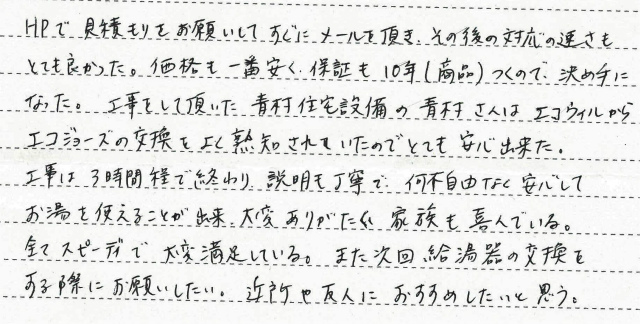 HPで見積もりをお願いしてすぐにメールを頂き、その後の対応の速さも
とても良かった。価格も一番安く、保証も10年(商品)つくので、決め手に
なった。工事をして頂いた青村住宅設備の青村さんはエコウィルから
エコジョーズの交換をよく熟知されていたのでとても安心出来た。
工事は3時間程で終わり、説明も丁寧で、何不自由なく安心して
お湯を使えることが出来、大変ありがたく、家族も喜んでいる。
全てスピーディで大変満足している。また次回給湯器の交換を
する際にお願いしたい。近所や友人におすすめしたいと思う。